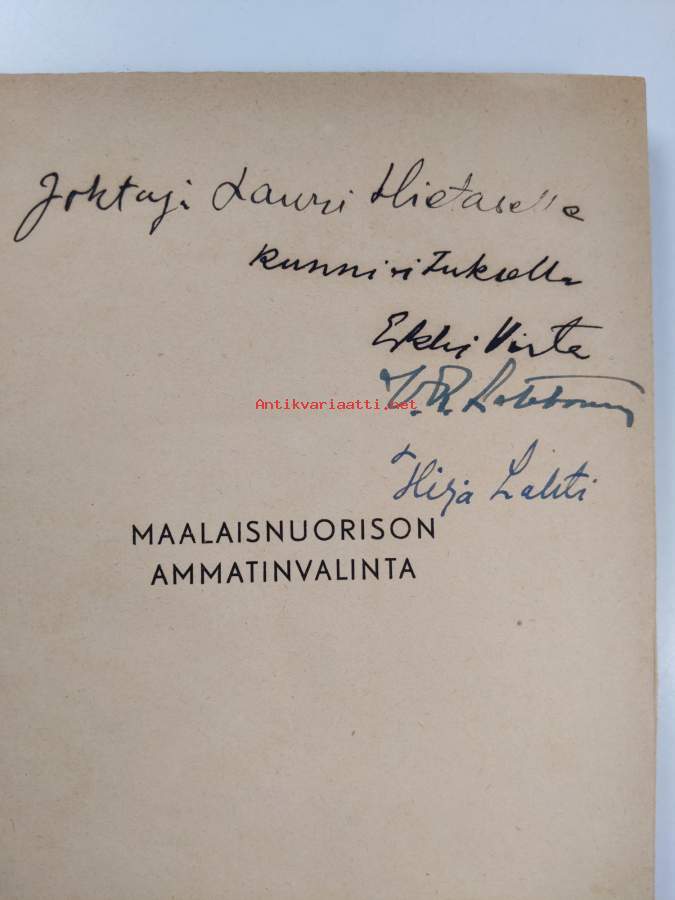 Johtaja Lauri Hietaselle
kunnioituksella
Erkki Virta
Antikvariaatti.net
Hirja Lahti
MAALAISNUORISON
AMMATINVALINTA